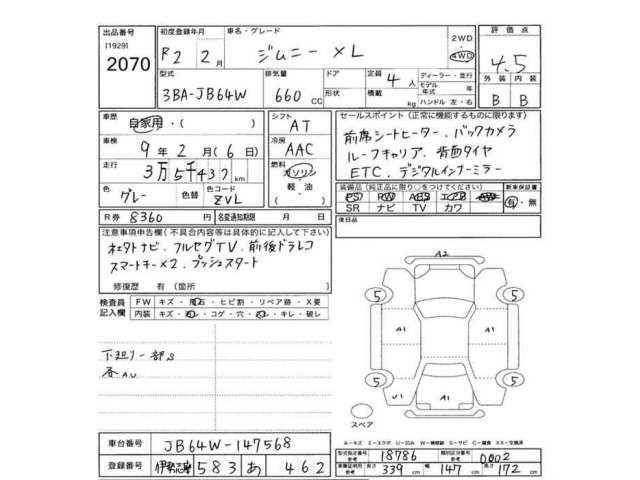 出品番号
[1929]
2070
初度登録年月
R2 2月
車名・グレード
ジムニー XL
2WD
・
4WD
評価点
4.5
外装 内装
B B
型式
3BA-JB64W
排気量
660 CC
ドア
形状
定員 4 人
積載 kg
ディーラー・並行
モデル年式 年
ハンドル 左・右
車歴
自家用・( )
シフト
AT
車検
9年 2月 (6日)
冷房
AAC
走行
3万5千437km
燃料
ガソリン
軽油
・( )
色
グレー
色替
色コード
ZVL
R券 8360 円
名変通知期限 月 日
セールスポイント(正常に機能するものに限ります)
前席シートヒーター、バックカメラ
ルーフキャリア、背面タイヤ
ETC、デジタルインナーミラー
装備品(純正品に限り○をつけてください)
新車保証書
PS PW ABS エアB
SR ナビ TV カワ
有・無
後日品
注意事項申告欄(不具合内容等は具体的に記入して下さい)
社外ナビ、フルセグTV、前後ドラレコ
スマートキー×2、プッシュスタート
修復歴 有(箇所 )
検査員
記入欄
FW キズ・飛石・ヒビ割・リペア跡・X要
内装 キズ・汚レ・コゲ・穴・スレ・キレ・破レ
下廻り一部S
各AU
A2
5 5
A1 A1
5 5
U1 A1
スペア
A-キズ E-エクボ U-凹み W-補修跡 S-サビ C-腐食 XX-交換済
車台番号 JB64W-147568
登録番号 伊勢志摩 583 あ 462
型式指定番号 参考 18786
類別区分番号 参考 0002
車庫証明用 参考
長さ 339 cm 幅 147 cm 高さ 172 cm